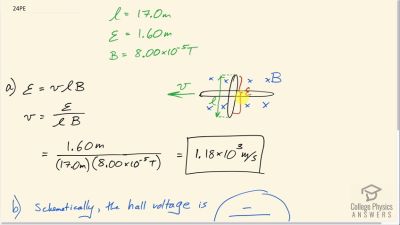 24PE
l = 17.0m
ε = 1.60m
B = 8.00×10⁻⁵T
a) ε = vlB
v = ε / lB
v
l
ε
B
= 1.60m / (17.0m)(8.00×10⁻⁵T) = 1.18×10³ m/s
b) Schematically, the hall voltage is
College Physics
ANSWERS